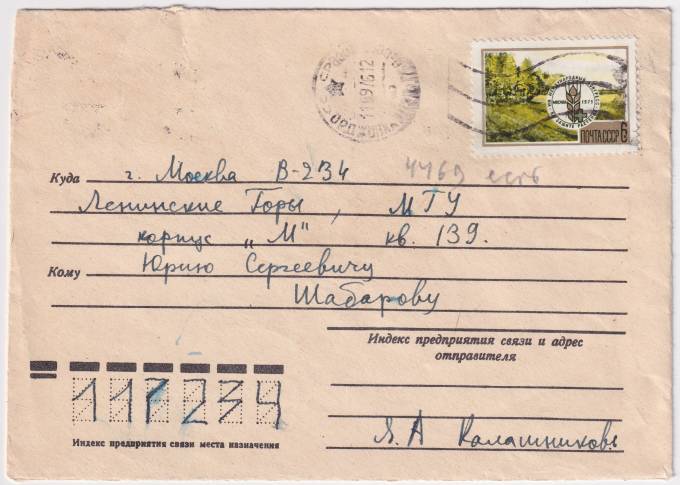 МОСКВА 1975
ПОЧТА СССР 6
11 09 76 12
Куда г. Москва В-234
4469 есть
Ленинские Горы, МГУ
корпус „М" кв. 139.
Кому Юрию Сергеевичу
Шабарову
Индекс предприятия связи и адрес
отправителя
117234
Индекс предприятия связи места назначения
Я. А Калашников